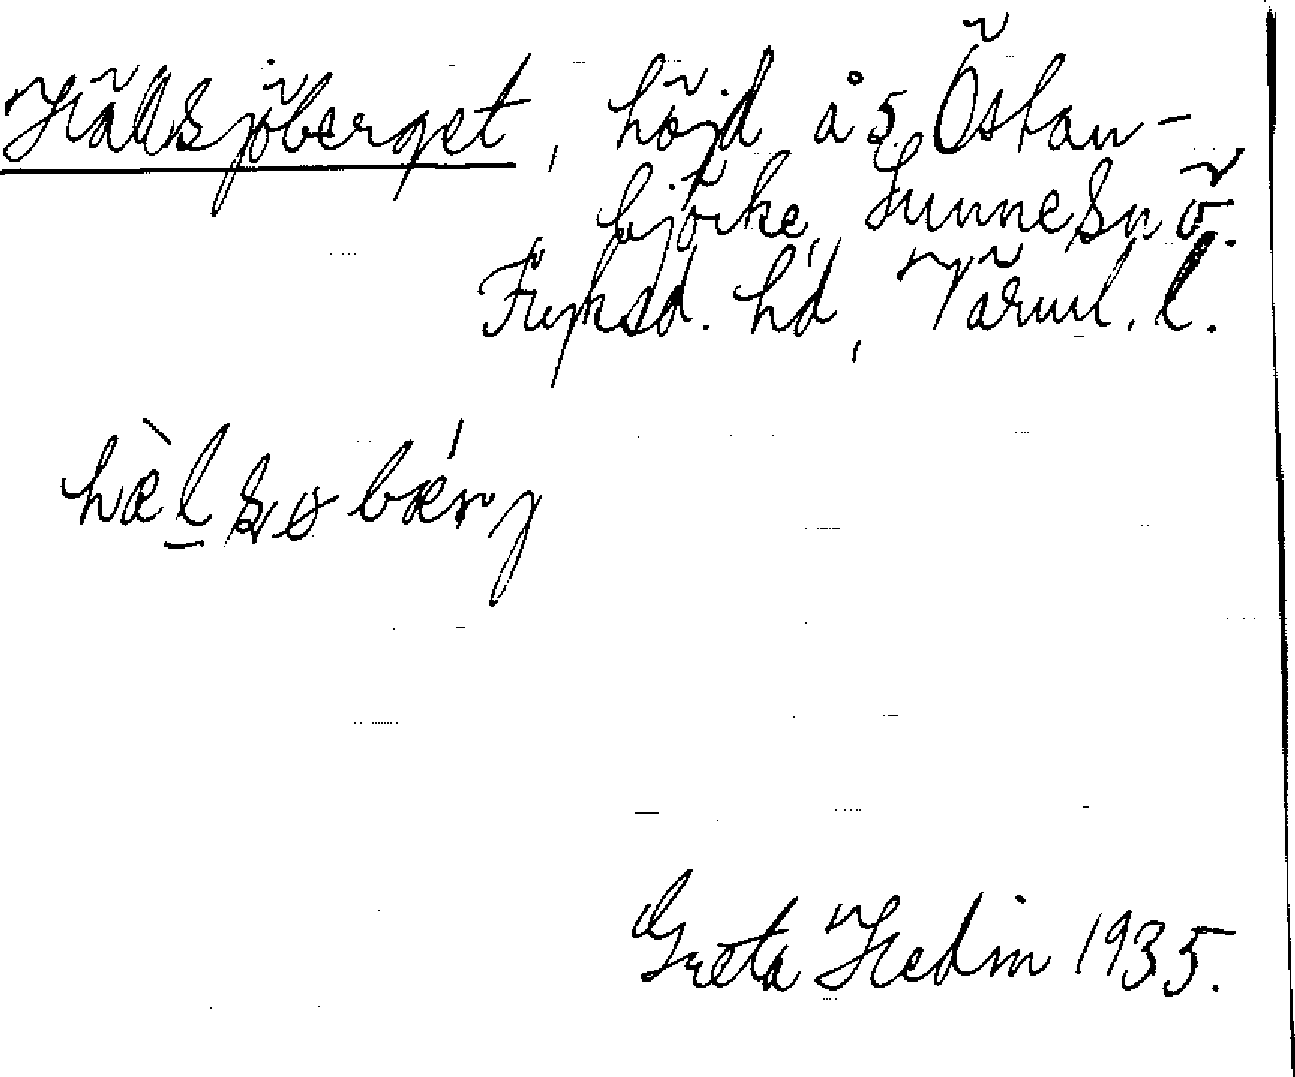 Hällsjöberget, höjd å s. Östan-
björke, Sunne sn ö.
Fryksd. hd, Värml. l.
hæ̀lsøbæ̀rj
Greta Hedin 1935.